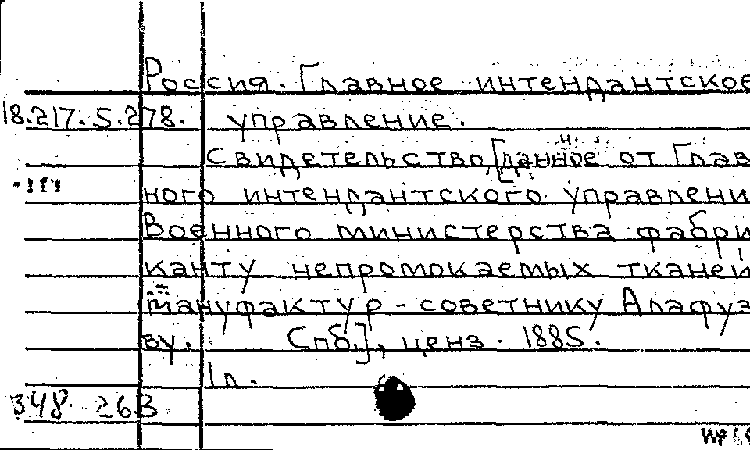 Россия. Главное интендантское
18.217.5.278. управление.
Свидетельство, [данное от Глав
ного интендантского управлени
Военного министерства фабри
канту непромокаемых тканей
мануфактур-советнику Алафуз
ву. Спб.], ценз. 1885.
1л.
348 263